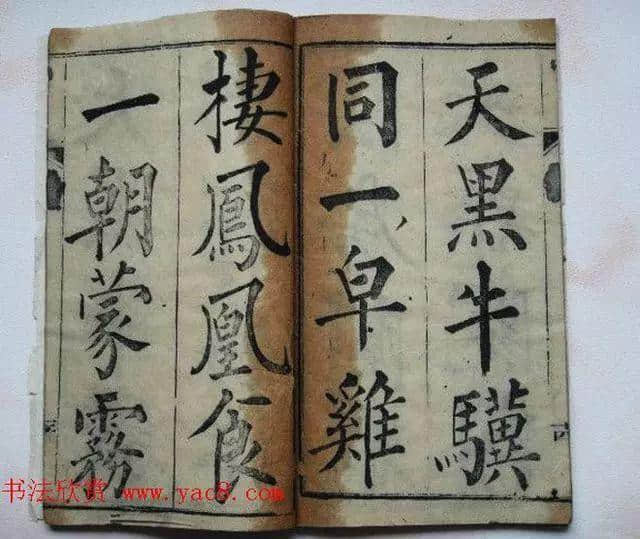 天黑牛驥
同一皁雞
棲鳳凰食
一朝蒙霧
书法欣赏 www.yac8.com